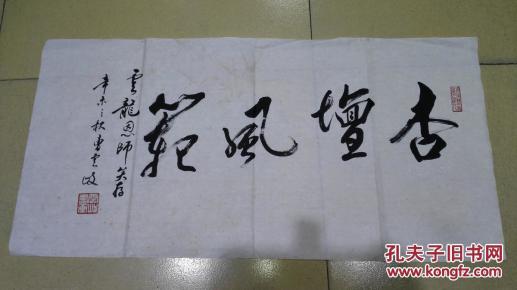 杏壇風範
雲龍恩師笑存
辛未之秋曹雲岐
孔夫子旧书网
www.kongfz.com